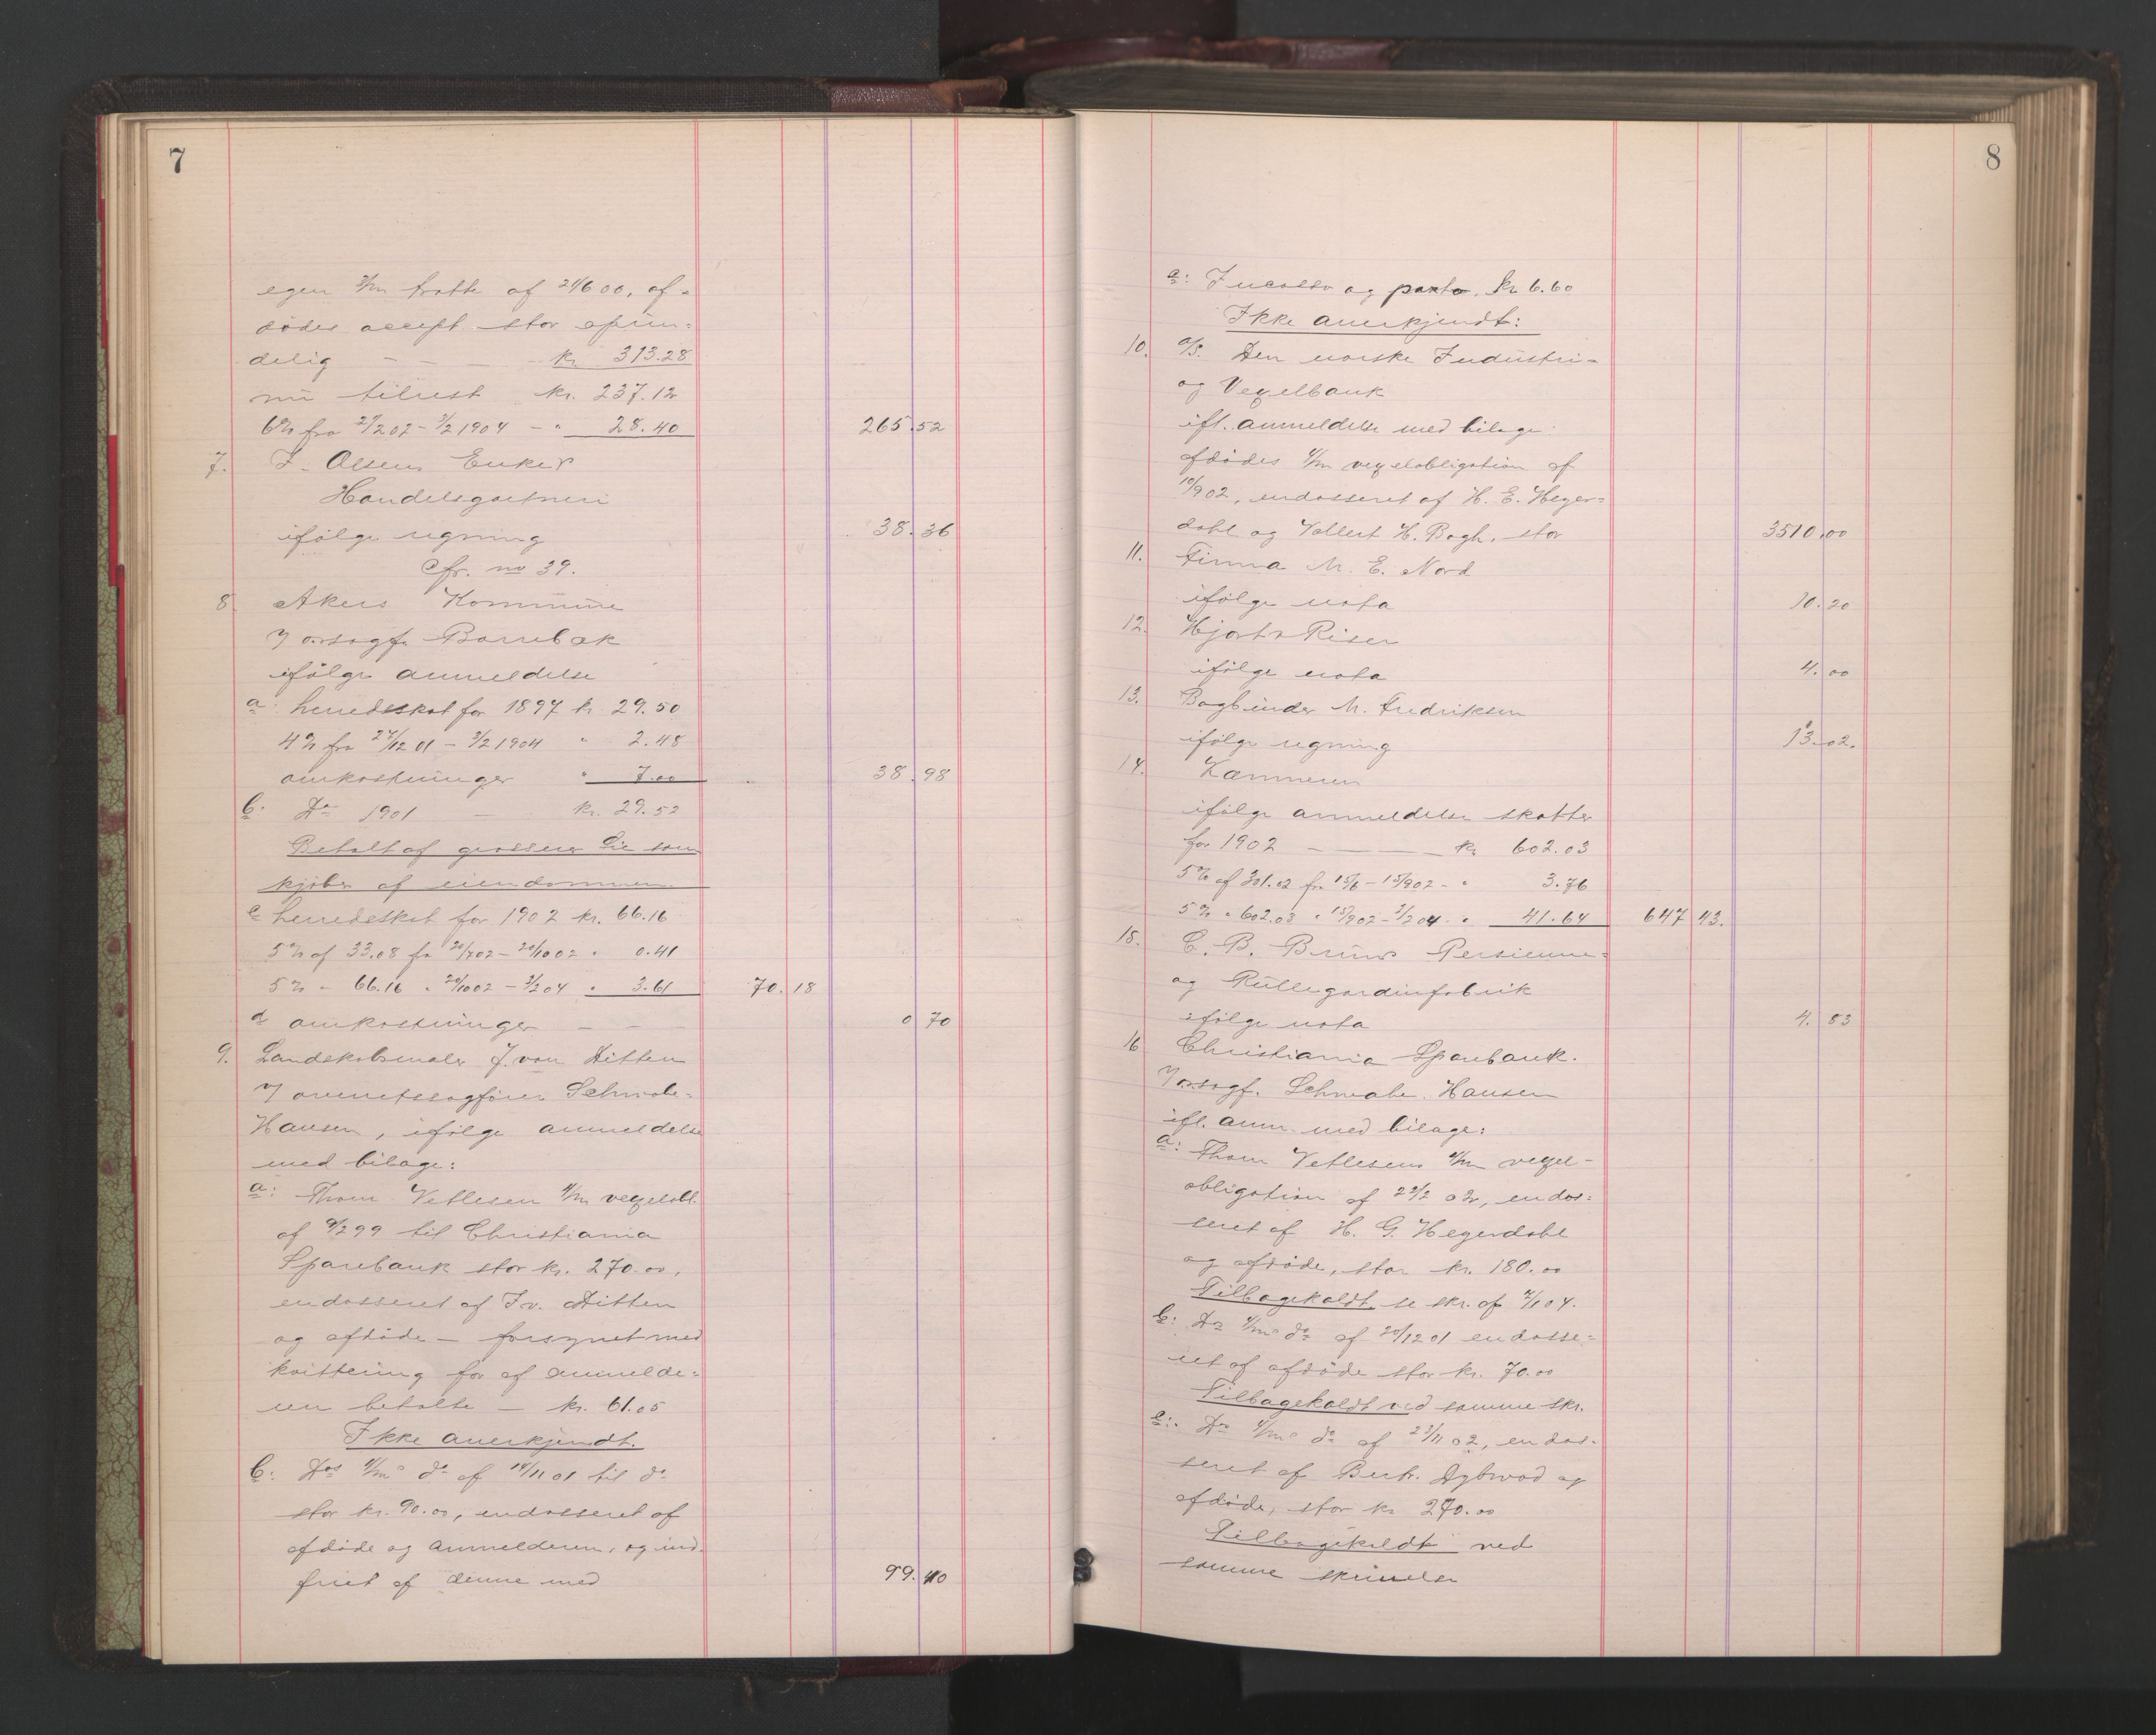 7
egen 3/m tratte af 21/6 00, af=
dødes accept stor oprin=
delig — — — kr. 313.28
nu tilrest kr. 237.12
6% fra 2/2 02 - 3/2 1904 - " 28.40 265.52
7. J. Olsens Enkes
Handelsgartneri
ifølge regning 38.36
Cfr. no 39.
8. Akers Kommune
v/ orsagf. Borrebæk
ifølge anmeldelse
a: herredskat for 1897 kr. 29.50
4% fra 27/12 01 - 3/2 1904 " 2.48
omkostninger " 7.00 38.98
b: Do 1901 — kr. 29.52
Betalt af grosserer Lie som
kjøber af eiendommen
c herredskat for 1902 kr. 66.16
5% af 33.08 fra 20/7 02 - 20/10 02 " 0.41
5% " 66.16 " 20/10 02 - 3/2 04 " 3.61 70.18
d omkostninger — — — 0.70
9. Landskabsmaler J. von Ditten
v/ overretssagfører Schwabe=
Hansen, ifølge anmeldelse
med bilage:
a: Thom Vetlesen 4/m vexelobl.
af 9/2 99 til Christiania
Sparebank stor kr. 270.00,
endosseret af J v. Ditten
og afdøde — forsynet med
kvittering for af anmelde=
ren betalte — kr. 61.05
Ikke anerkjendt.
b: Dos 4/m do af 18/11 01 til do
stor kr. 90.00, endosseret af
afdøde og anmelderen, og ind=
friet af denne med 99.40
8
a: Incasso og porto, kr 6.60
Ikke anerkjendt:
10. A/S. Den norske Industri=
og Vexelbank
ifl. anmeldelse med bilage
afdødes 4/m vexelobligation af
10/9 02, endosseret af H. E. Heger=
dahl og Vollert H. Bogh, stor 3510.00
11. Firma M. E. Nord
ifølge nota 10.20
12. Hjorts Riser
ifølge nota 4.00
13. Bogbinder M. Fredriksen
ifølge regning 13.02.
14. Kæmneren
ifølge anmeldelse skatter
for 1902 — — — kr 602.03
5% af 301.02 fra 15/6 - 15/9 02 - " 3.76
5% " 602.03 " 15/9 02 - 3/2 04 " 41.64 647.43.
15. C. B. Bruns Persienne=
og Rullegardinfabrik
ifølge nota 4.53
16 Christiania Sparebank.
v/ orsagf. Schwabe Hansen
ifl. anm. med bilage:
a: Thom Vetlesens 4/m vexel=
obligation af 22/2 02, endos=
seret af H. G. Hegerdahl
og afdøde, stor kr. 180.00
Tilbagekaldt se skr. af 2/1 04.
b: Do 4/m do af 20/12 01 endosse=
ret af afdøde stor kr. 70.00
Tilbagekaldt ved samme skr.
c: Do 4/m do af 23/11 02, endos=
seret af Bertr. Dybwad og
afdøde, stor kr 270.00
Tilbagekaldt ved
samme skrivelse